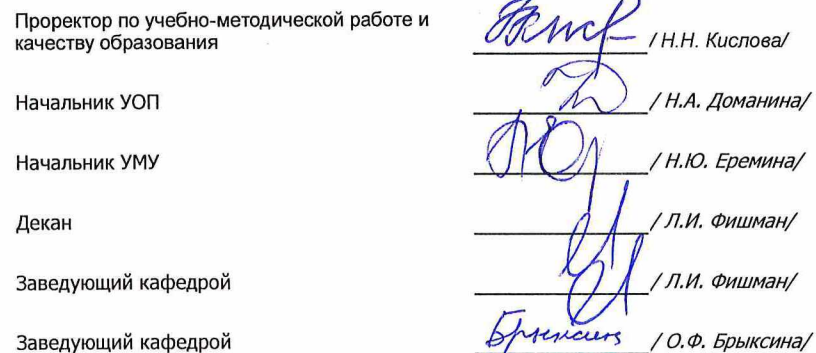 Проректор по учебно-методической работе и
качеству образования / Н.Н. Кислова/
Начальник УОП / Н.А. Доманина/
Начальник УМУ / Н.Ю. Еремина/
Декан / Л.И. Фишман/
Заведующий кафедрой / Л.И. Фишман/
Заведующий кафедрой / О.Ф. Брыксина/